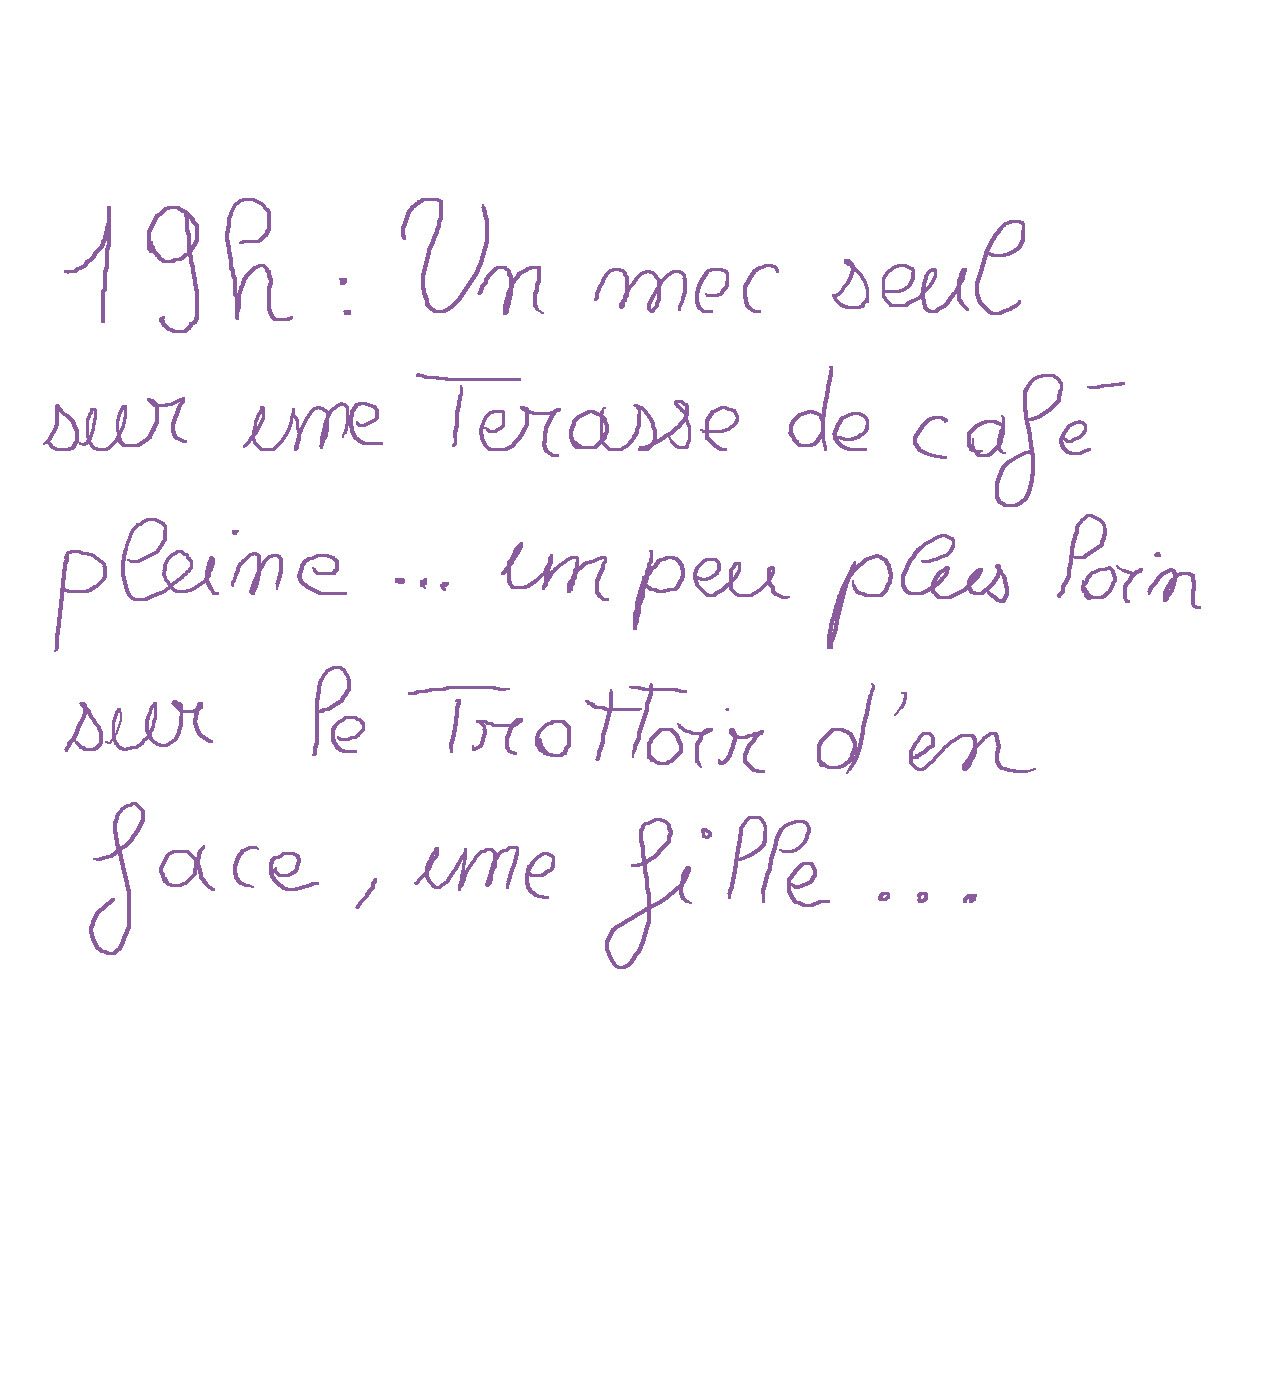 19h : Un mec seul
sur une Terasse de café
pleine ... un peu plus loin
sur le Trottoir d'en
face, une fille ...